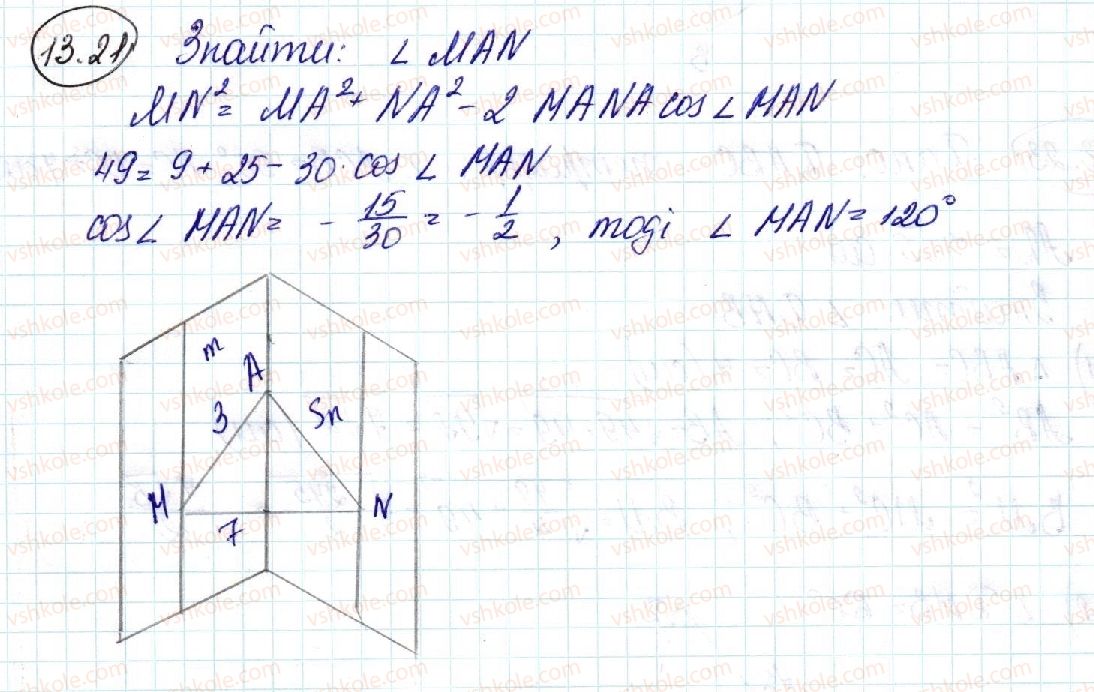 13.21 Знайти: ∠ MAN
MN² = MA² + NA² - 2 MANA cos ∠ MAN
49 = 9 + 25 - 30 · cos ∠ MAN
cos ∠ MAN = - 15/30 = - 1/2, тоді ∠ MAN = 120°
m
A
3
5n
M
N
7
vshkole.com